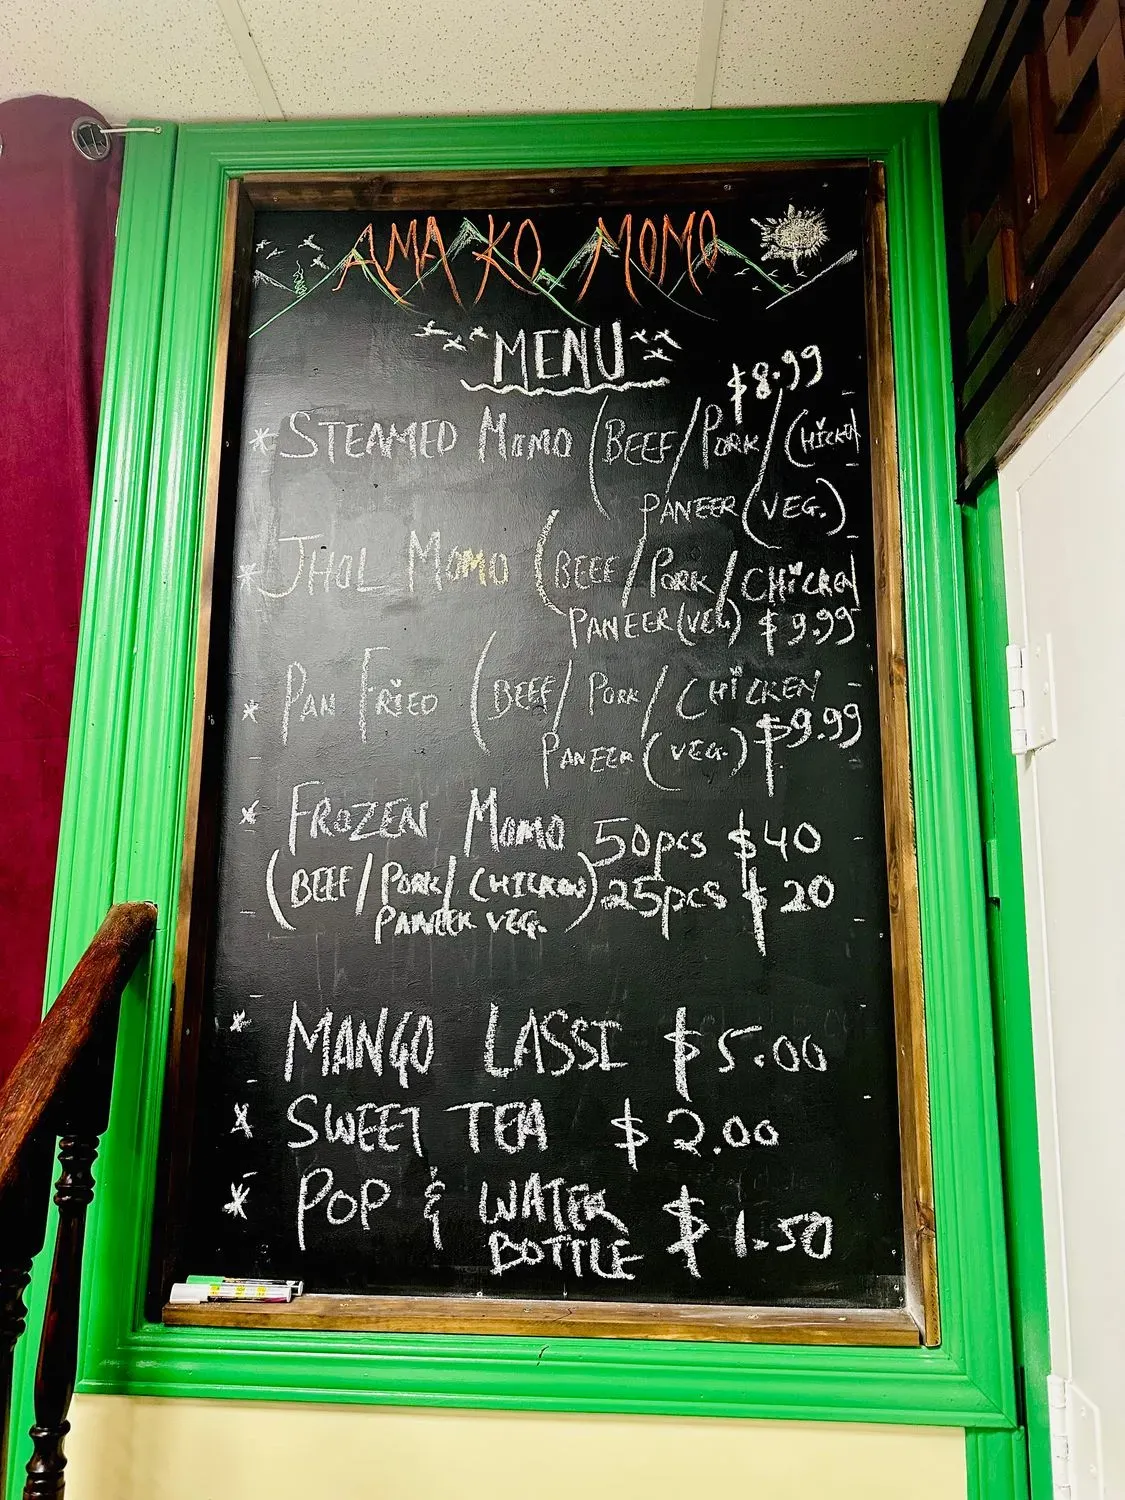 AMA KO MOMO
MENU
$8.99
* STEAMED MOMO (BEEF/PORK/CHICKEN
PANEER (VEG.)
* JHOL MOMO (BEEF/PORK/CHICKEN
PANEER (VEG) $9.99
* PAN FRIED (BEEF/PORK/CHICKEN
PANEER (VEG.) $9.99
* FROZEN MOMO 50pcs $40
(BEEF/PORK/CHICKEN) 25pcs $20
PANEER VEG.
* MANGO LASSI $5.00
* SWEET TEA $2.00
* POP & WATER $1.50
BOTTLE